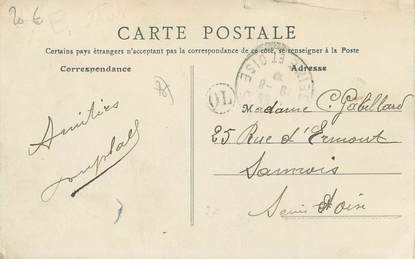 20 €
CARTE POSTALE
Certains pays étrangers n'acceptant pas la correspondance de ce côté, se renseigner à la Poste
Correspondance
Adresse
SEINE ET OISE
OL
Amitiés
Madame C. Gabillard
25 Rue d'Ermont
Sannois
Seine et Oise